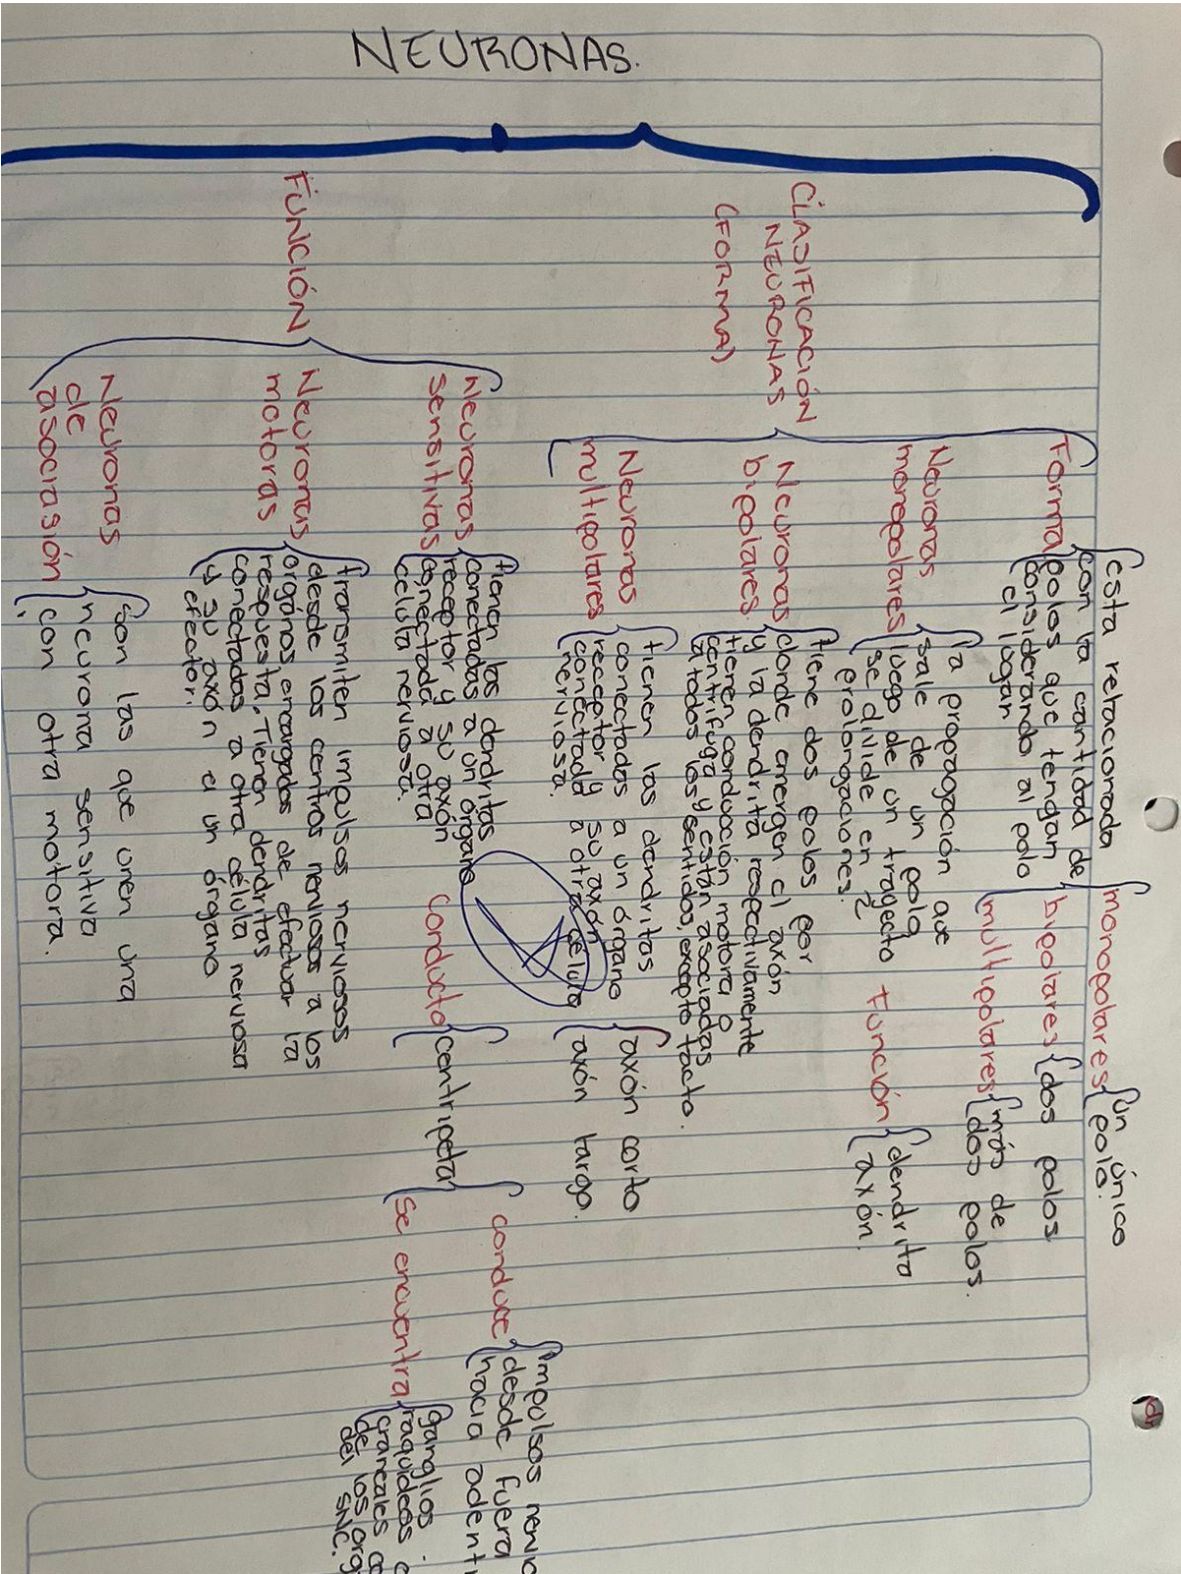 NEURONAS.
CLASIFICACIÓN
NEURONAS
(FORMA)
Forma
esta relacionada
con la cantidad de
polos que tengan
considerando al polo
el lugar
monopolares
un único
polo.
bipolares
dos polos
multipolares
más de
dos polos.
Neuronas
monopolares
la propagación que
sale de un polo
luego de un tragecto
se divide en 2
prolongaciones.
Función
dendrita
axón.
Neuronas
bipolares
tiene dos polos por
donde emergen el axón
y la dendrita respectivamente
tienen conducción motora o
centrifuga y están asociadas
a todos los sentidos, excepto tacto.
Neuronas
multipolares
tienen las dendritas
conectadas a un órgano
receptor y su axón
conectada a otra celula
nerviosa.
axón corto
axón largo.
FUNCIÓN
Neuronas
sensitivas
tienen las dendritas
conectadas a un órgano
receptor y su axón
conectada a otra
celula nerviosa.
conducta
centripeta
conduce
impulsos
desde fuera
hacia
se encuentra
ganglios
raquideos
craneales
de los
del SNC.
Neuronas
motoras
transmiten impulsos nerviosos
desde los centros nerviosos a los
orgános encargados de efectuar la
respuesta. Tienen dendritas
conectadas a otra célula nerviosa
y su axón a un órgano
efector.
Neuronas
de
asociasión
son las que unen una
neurona sensitiva
con otra motora.